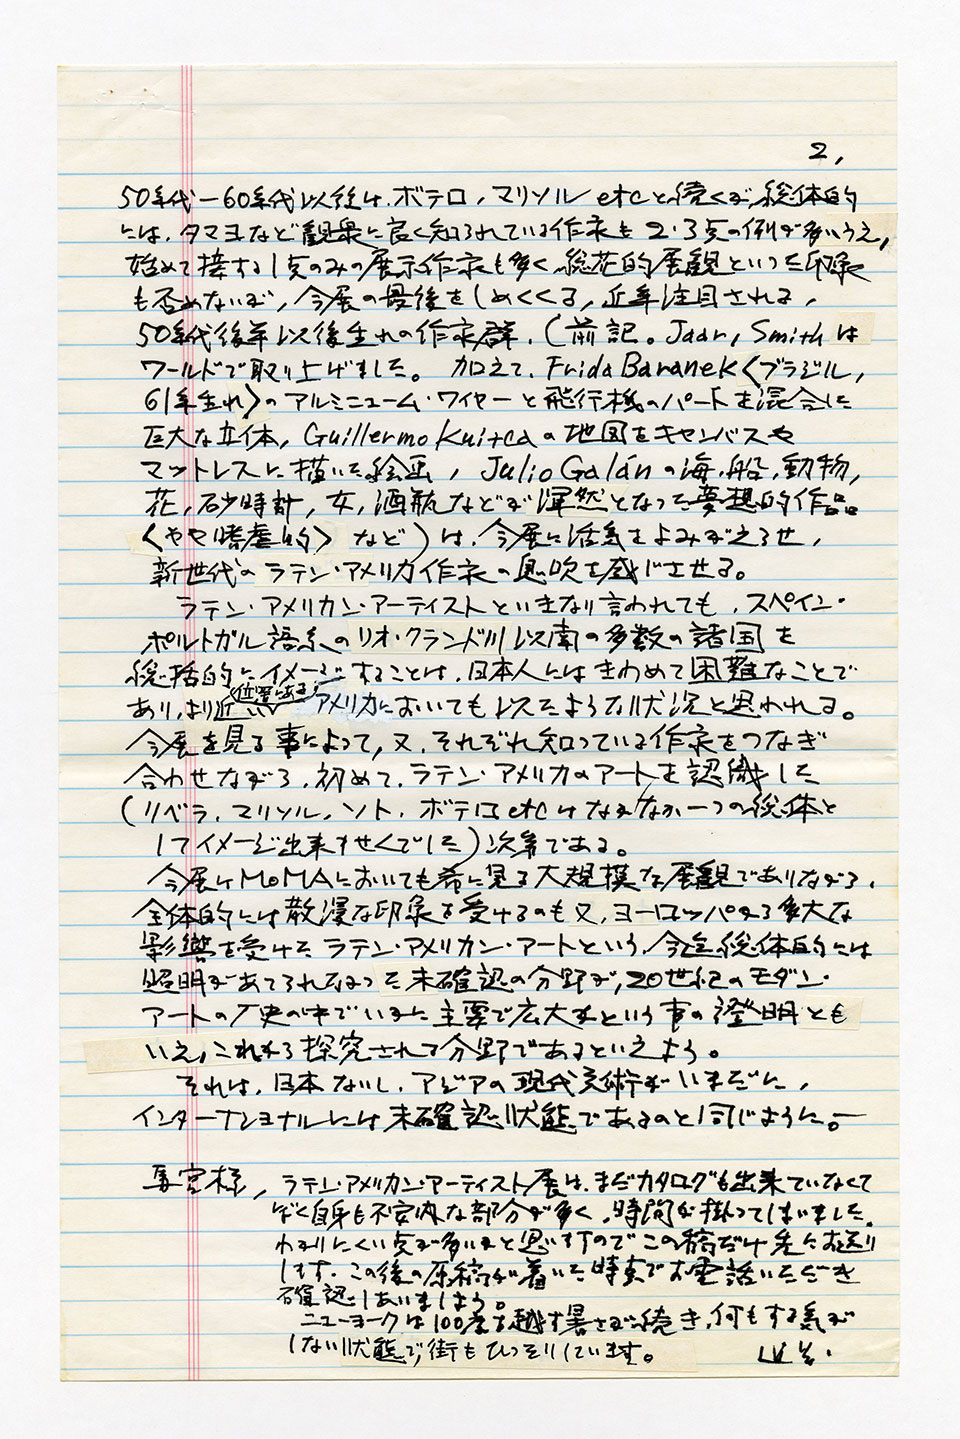 2,
50年代ー60年代以後は、ボテロ、マリソル etc と続くが、総体的
には、タマヨなど観衆に良く知られている作家も2・3点の例が多いうえ、
始めて接する1点のみの展示作家も多く総花的展観といった印象
も否めないが、今展の最後をしめくくる、近年注目される、
50年代後半以後生れの作家群、(前記。Jaar, Smith は
ワールドで取り上げました。加えて、Frida Baranek〈ブラジル,
61年生れ〉のアルミニューム・ワイヤーと飛行機のパートを混合した
巨大な立体, Guillermo Kuitca の地図をキャンバスや
マットレスに描いた絵画, Julio Galán の海、船、動物,
花, 砂時計, 女, 酒瓶などが渾然となった夢想的作品
〈やや嗜虐的〉など)は、今展に活気をよみがえらせ,
新世代のラテン・アメリカ作家の息吹を感じさせる。
ラテン・アメリカン・アーティストといきなり言われても、スペイン・
ポルトガル語系のリオ・グランド川以南の多数の諸国を
総括的にイメージすることは、日本人にはきわめて困難なことで
あり、より近い位置にあるアメリカにおいても似たような状況と思われる。
今展を見る事によって, 又、それぞれ知っている作家をつなぎ
合わせながら、初めて、ラテン・アメリカのアートを認識した
(リベラ, マリソル, ソト, ボテロ etc はなかなか一つの総体と
してイメージ出来ませんでした) 次第である。
今展は MoMA においても希に見る大規模な展観でありながら、
全体的には散漫な印象を受けるのも又, ヨーロッパから多大な
影響を受けたラテン・アメリカン・アートという、今迄総体的には
照明があてられなかった未確認の分野が, 20世紀のモダン・
アートの歴史の中でいかに主要で広大かという事の證明とも
いえ, これから探究されて分野であるといえよう。
それは、日本ないし、アジアの現代美術がいまだに,
インターナショナルには未確認状態であるのと同じように。ー
馬宮様, ラテン・アメリカン・アーティスト展は、まだカタログも出来ていなくて
ぼく自身も不安内な部分が多く、時間が掛ってしまいました。
わかりにくい点が多いかと思いますのでこの稿だけ先にお送り
します。この後の原稿が着いた時点でお電話いただき
確認しあいましょう。
ニューヨークは100度を越す暑さが続き、何もする気が
しない状態で, 街もひっそりしています。